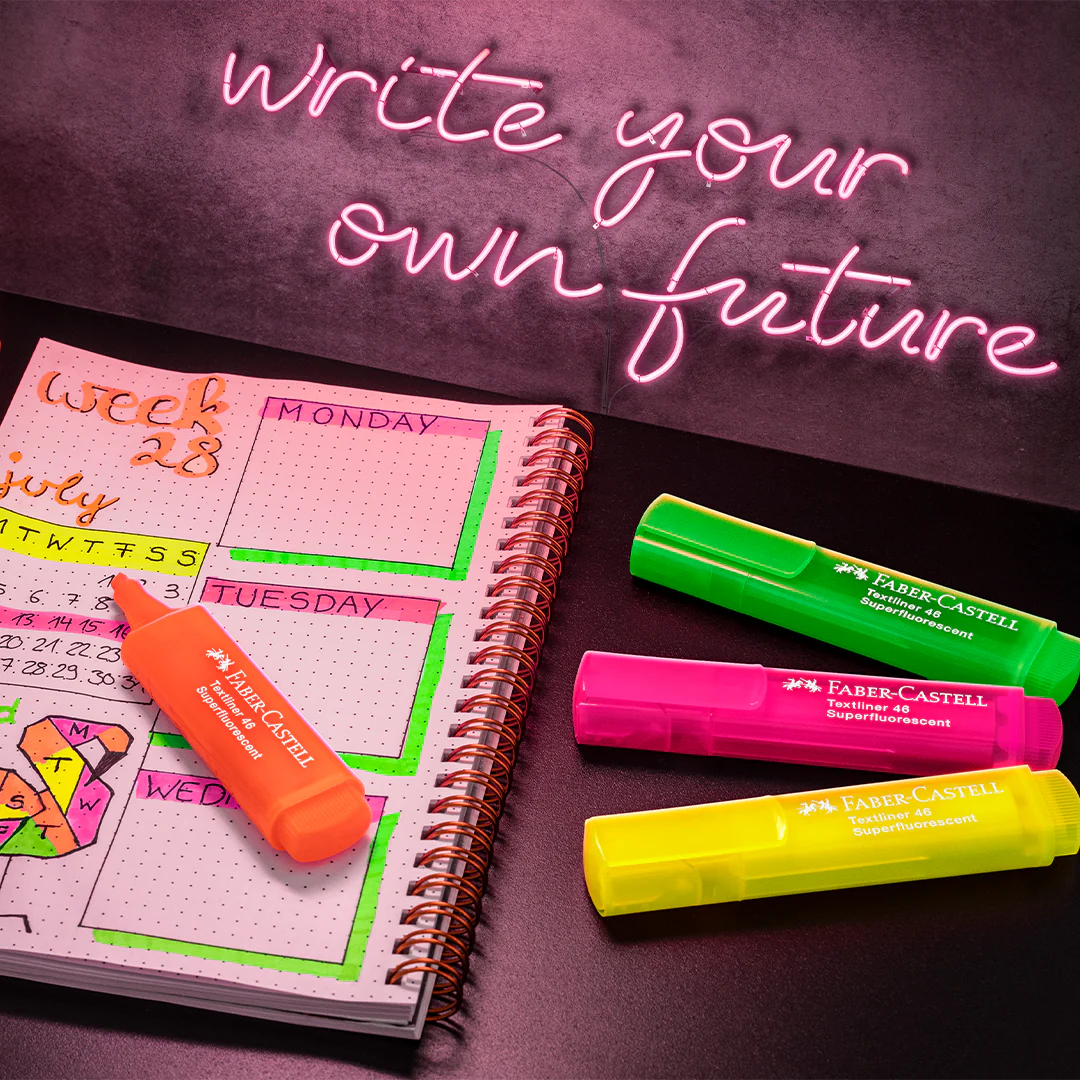 write your
own future
week
28
july
MONDAY
M T W T F S S
3.
6. 7. 8
TUESDAY
13. 14. 15. 16
20. 21. 22. 23
28. 29. 30. 31.
FABER-CASTELL
Textliner 46
Superfluorescent
FABER-CASTELL
Textliner 46
Superfluorescent
FABER-CASTELL
Textliner 46
Superfluorescent
FABER-CASTELL
Textliner 46
Superfluorescent
M
T
W
S
T